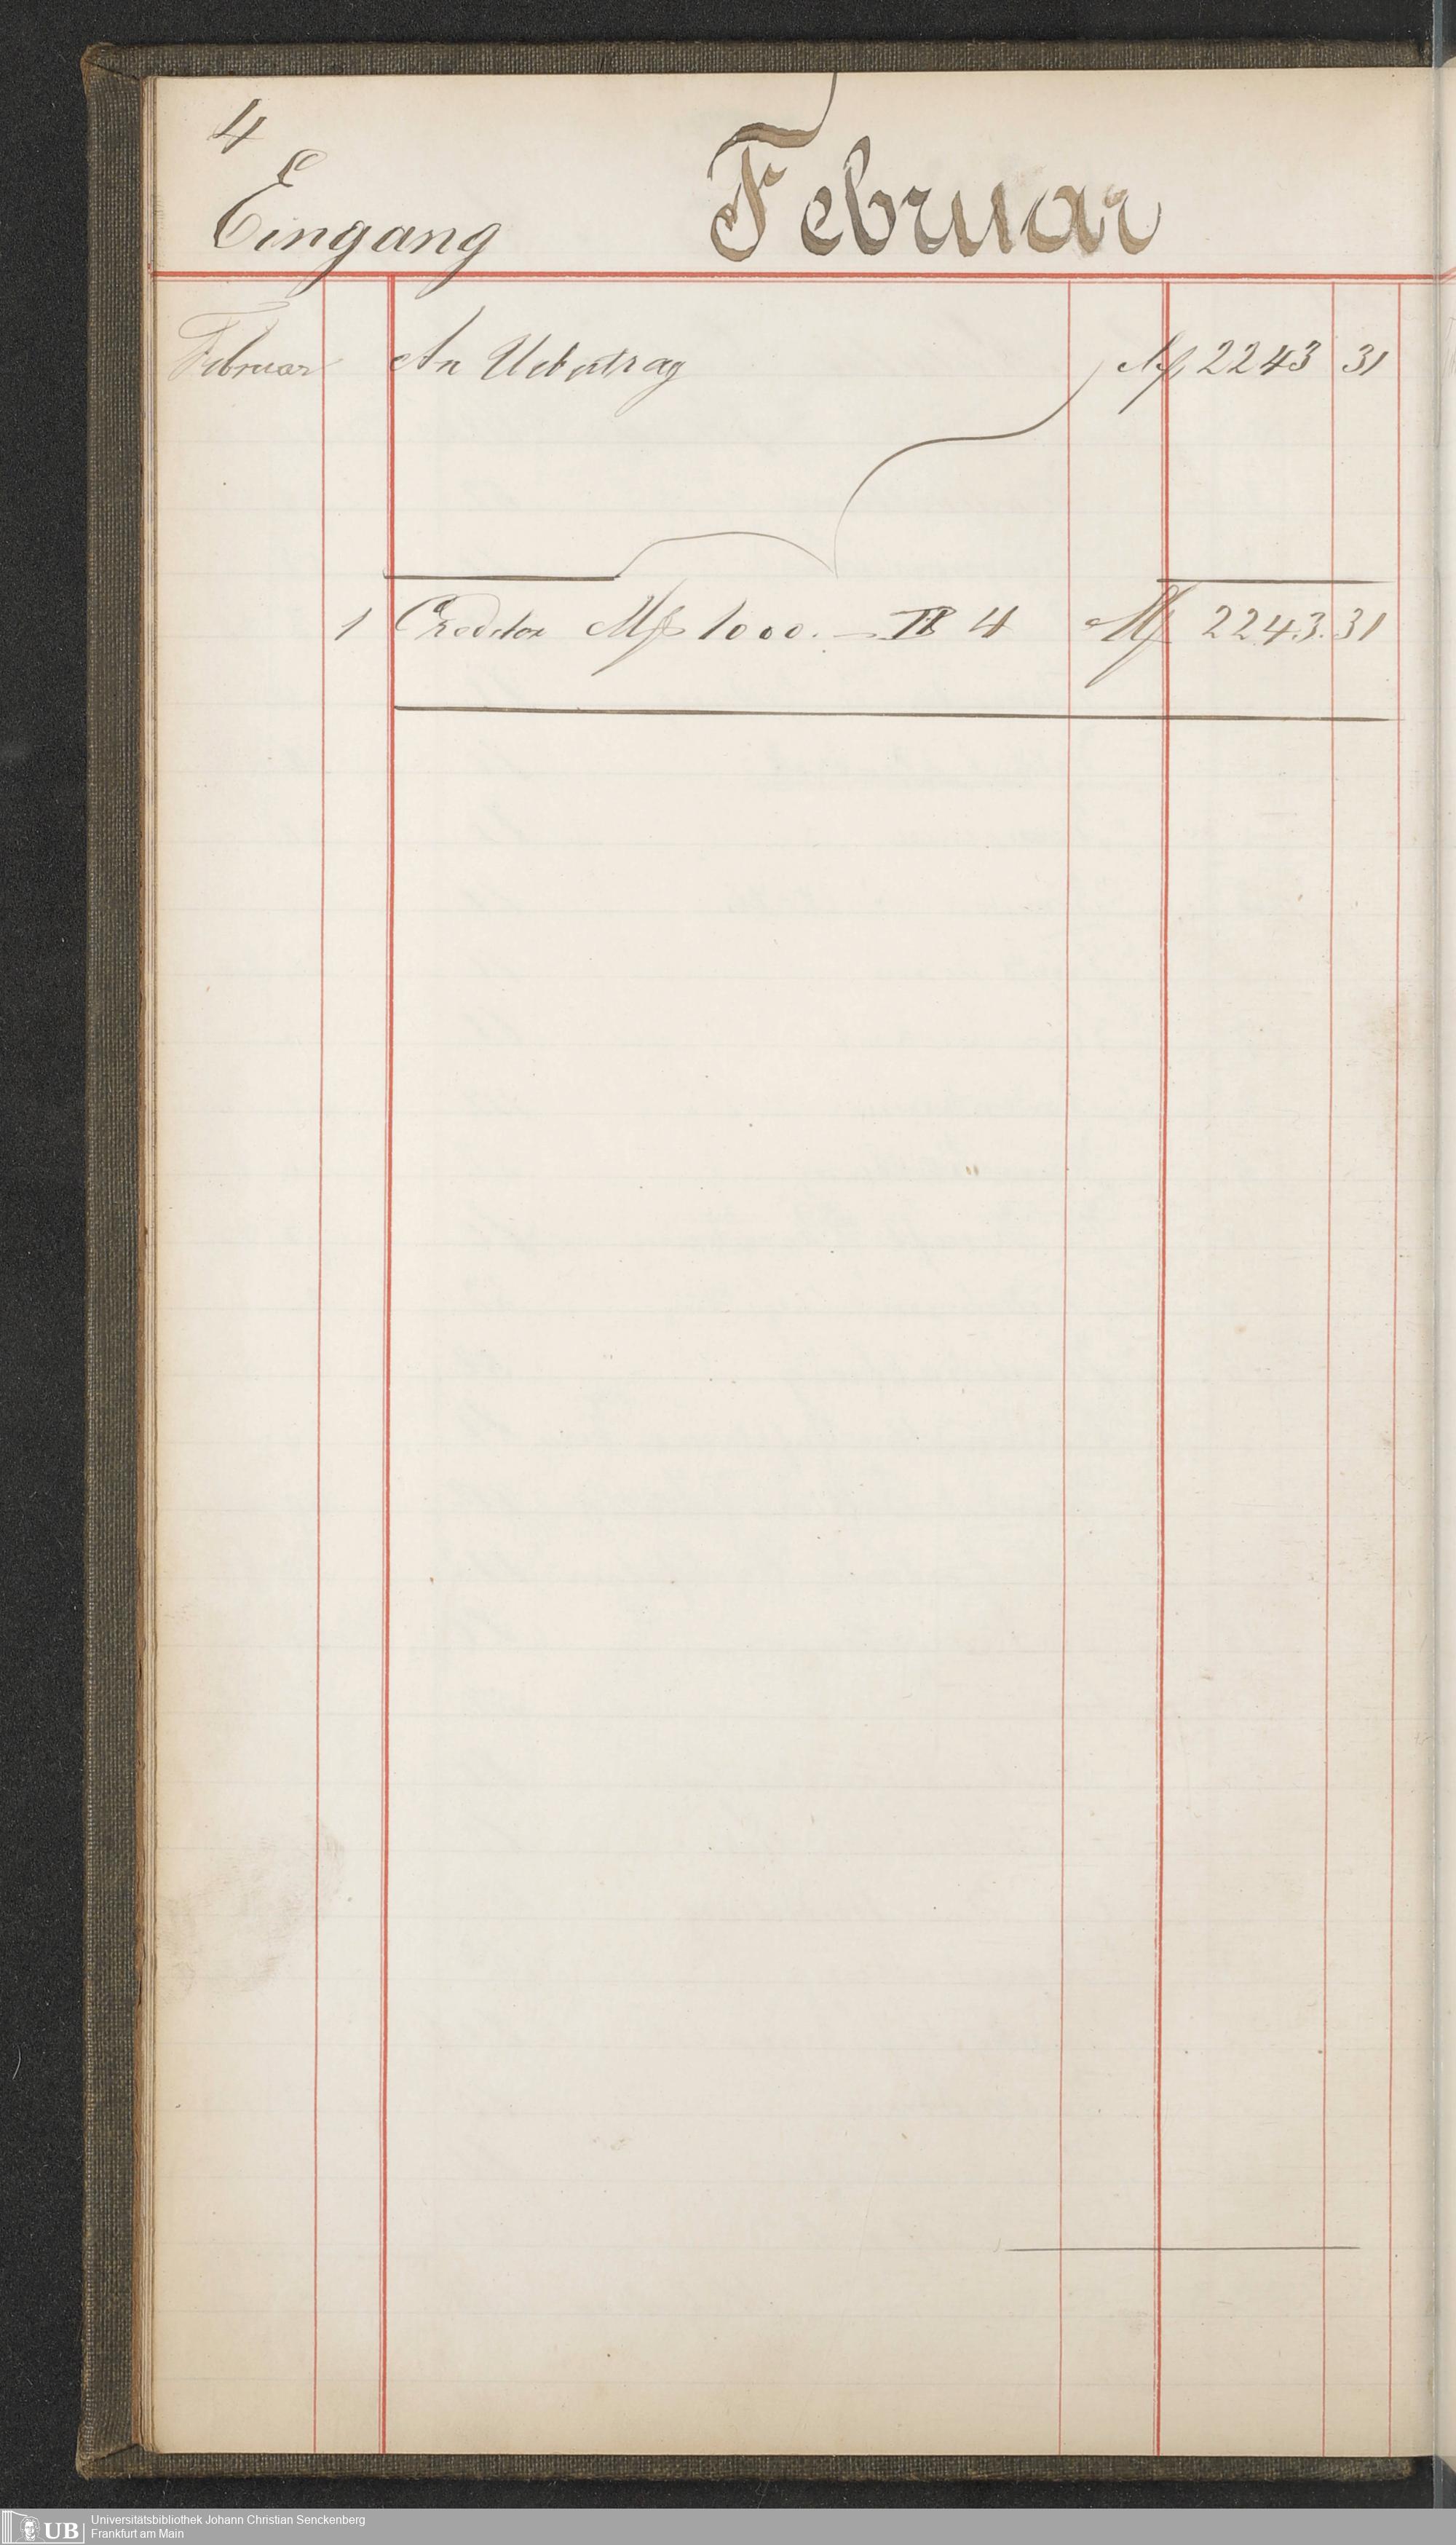 4
Eingang Februar
Februar An Uebertrag M 2243 31
1 Creditor M 1000. — II 4 M 2243. 31
UB Universitätsbibliothek Johann Christian Senckenberg
Frankfurt am Main